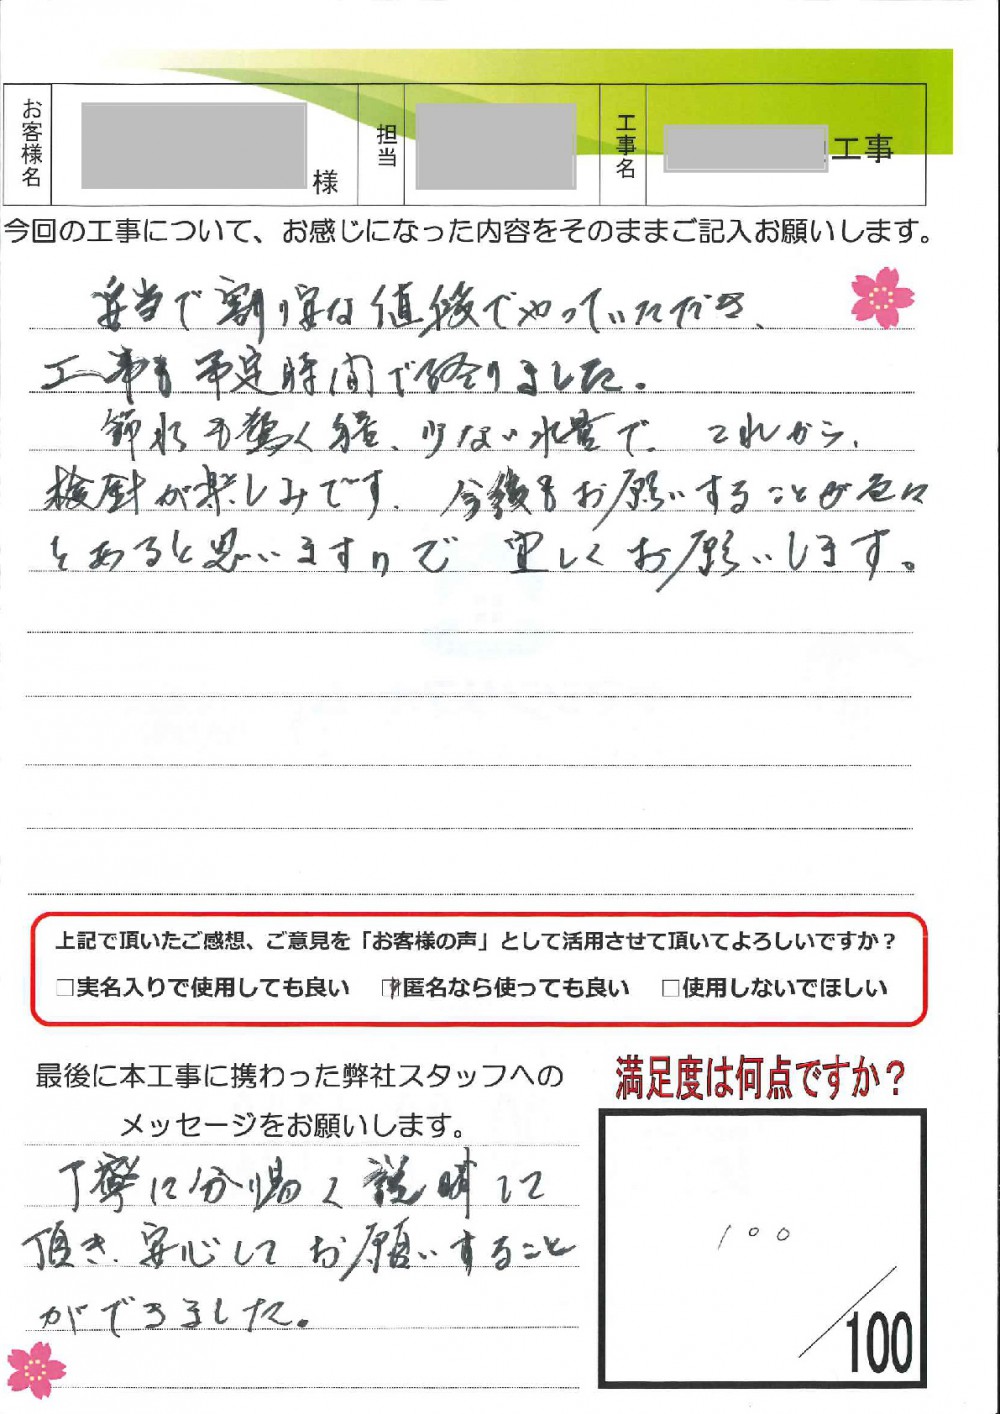 お客様名
様
担当
工事名
工事
今回の工事について、お感じになった内容をそのままご記入お願いします。
妥当で割り安な値段でやっていただき、
工事も予定時間で終りました。
節水も驚く程、少ない水量で、これから、
検針が楽しみです。今後もお願いすることが色々
とあると思いますので宜しくお願いします。
上記で頂いたご感想、ご意見を「お客様の声」として活用させて頂いてよろしいですか？
□実名入りで使用しても良い ☑匿名なら使っても良い □使用しないでほしい
最後に本工事に携わった弊社スタッフへの
メッセージをお願いします。
丁寧に分り易く説明して
頂き、安心してお願いすること
ができました。
満足度は何点ですか？
100
/100